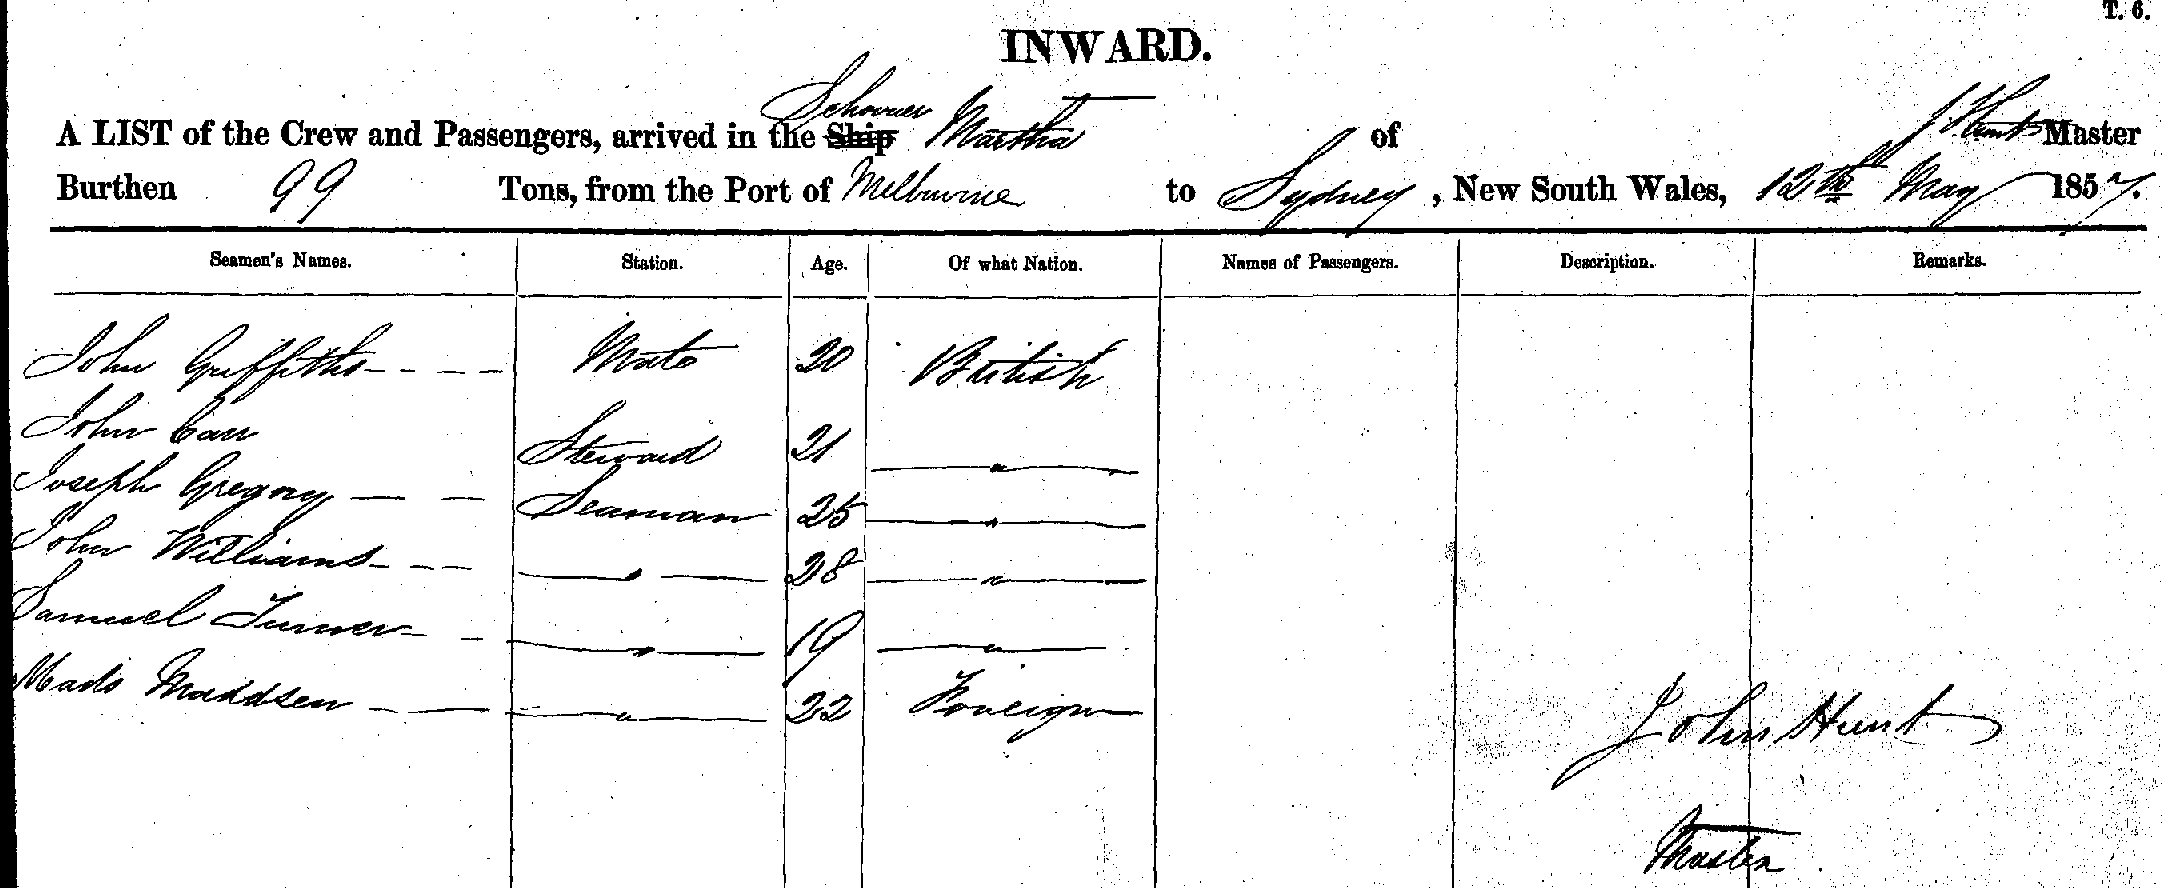 T. 6.
INWARD.
Schooner
A LIST of the Crew and Passengers, arrived in the Ship Martha of J Hunt Master
Burthen 99 Tons, from the Port of Melbourne to Sydney, New South Wales, 12th May 1857.
Seamen's Names. Station. Age. Of what Nation. Names of Passengers. Description. Remarks.
John Griffiths - - - - Mate 20 British
John Carr Steward 21 — " —
Joseph Gregory — — Seaman 25 — " —
John Williams - - - — " — 28 — " —
Samuel Turner - - — " — 19 — " —
Mads Maddsen - — — — " — 22 Foreign
John Hunt
Master